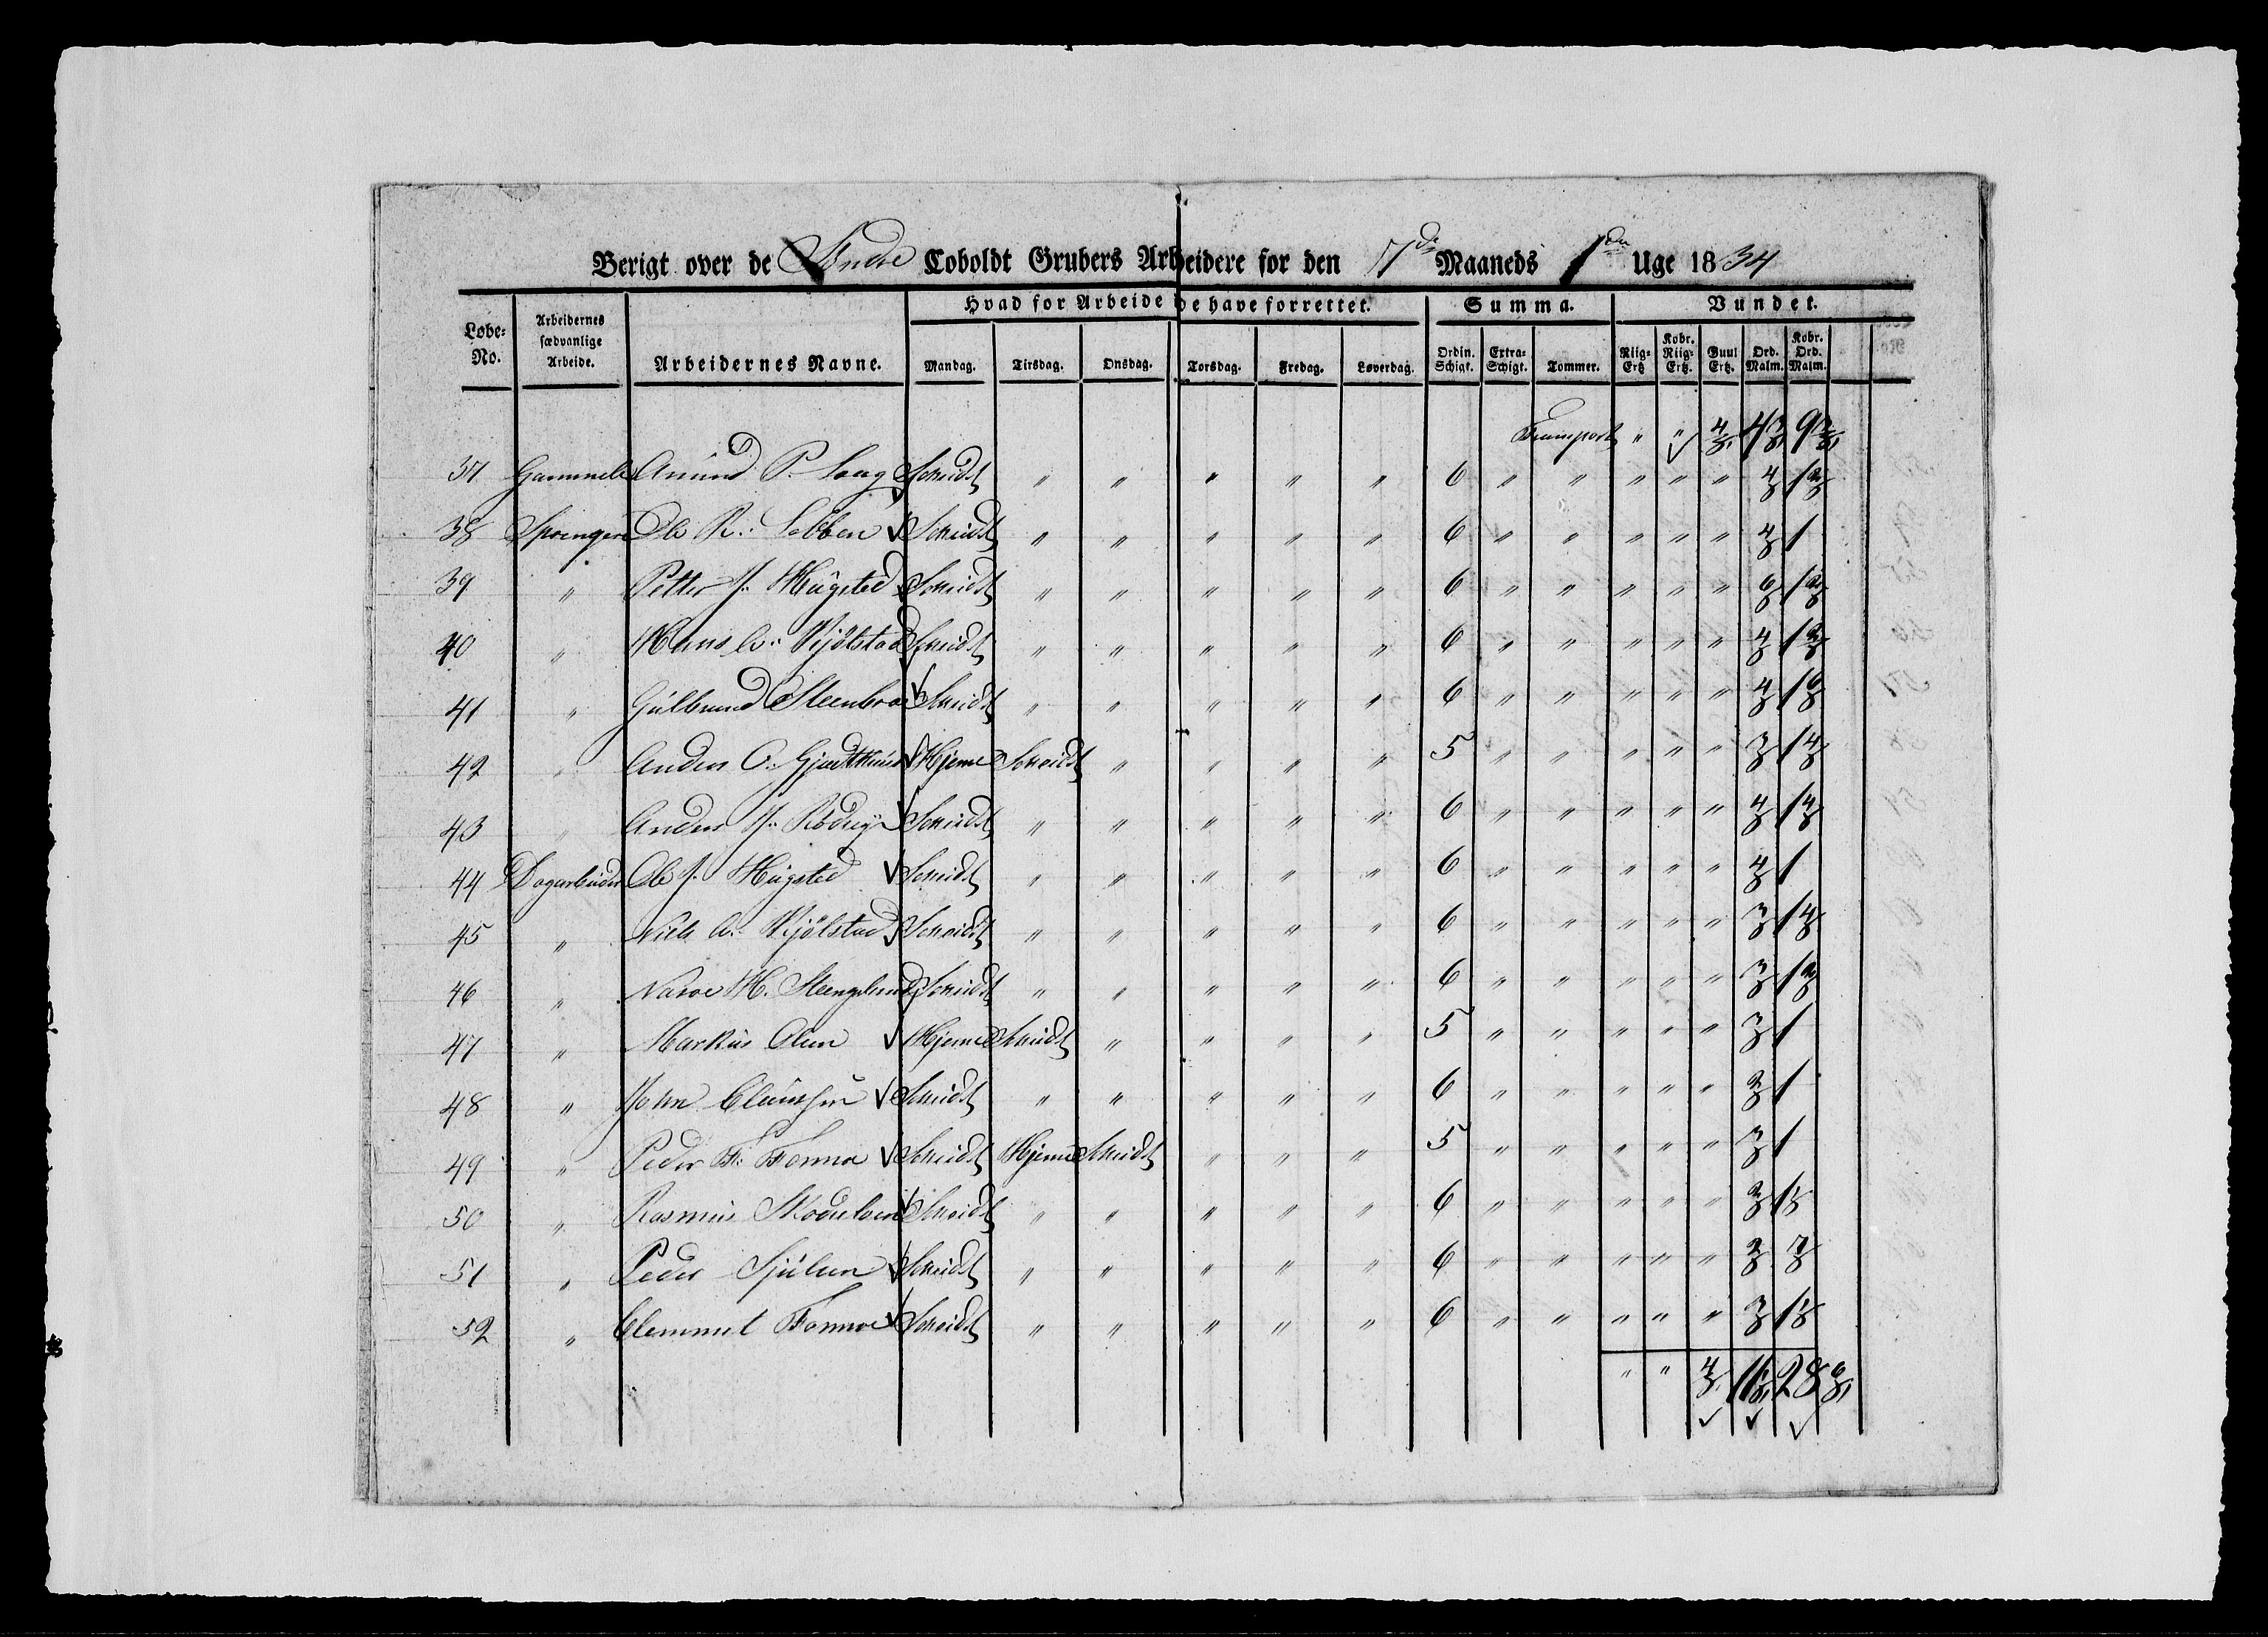 Berigt over de Søndre Coboldt Grubers Arbeidere for den 7de Maaneds 1ste Uge 1834
Løbe-No. Arbeidernes sædvanlige Arbeide. Arbeidernes Navne. Hvad for Arbeide de have forrettet. Summa. Vundet.
Mandag. Tirsdag. Onsdag. Torsdag. Fredag. Løverdag. Ordin. Schigt. Extra-Schigt. Tommer. Riig-Ertz Kobr. Riig-Ertz. Guul Ertz. Ord. Malm. Kobr. Ord. Malm.
Transport " " 4/8 4 3/8 9 3/8
37 Gammele Amund P. Saug Scheidt " " " " " 6 " " " " " 4/8 1 2/8
38 Sprengere Ole R. Sebben Scheidt " " " " " 6 " " " " " 4/8 1
39 " Petter J. Hügsted Scheidt " " " " " 6 " " " " " 6/8 1 2/8
40 " Hans C. Kjølstad Scheidt " " " " " 6 " " " " " 4/8 1 2/8
41 " Gulbrand Steenbro Scheidt " " " " " 6 " " " " " 4/8 1 6/8
42 " Anders O. Hjeme Scheidt " " " " 5 " " " " " 3/8 1 4/8
43 " Anders J. Scheidt " " " " " 6 " " " " " 4/8 1 4/8
44 Dagarbeider Ole J. Hügsted Scheidt " " " " " 6 " " " " " 4/8 1
45 " Niels C. Kjølstad Scheidt " " " " " 6 " " " " " 3/8 1 4/8
46 " Narve H. Steenglund Scheidt " " " " " 6 " " " " " 3/8 1 2/8
47 " Markus Olsen Hjeme Scheidt " " " " 5 " " " " " 3/8 1
48 " John Clausen Scheidt " " " " " 6 " " " " " 3/8 1
49 " Peder F. Fonnoe Scheidt Hjeme Scheidt " " " 5 " " " " " 3/8 1
50 " Rasmus Skovelsen Scheidt " " " " " 6 " " " " " 3/8 1 1/8
51 " Peder Sjulsen Scheidt " " " " " 6 " " " " " 3/8 7/8
52 " Clemmet Fonnoe Scheidt " " " " " 6 " " " " " 3/8 1 1/8
" " 4/8 11 1/8 28 6/8